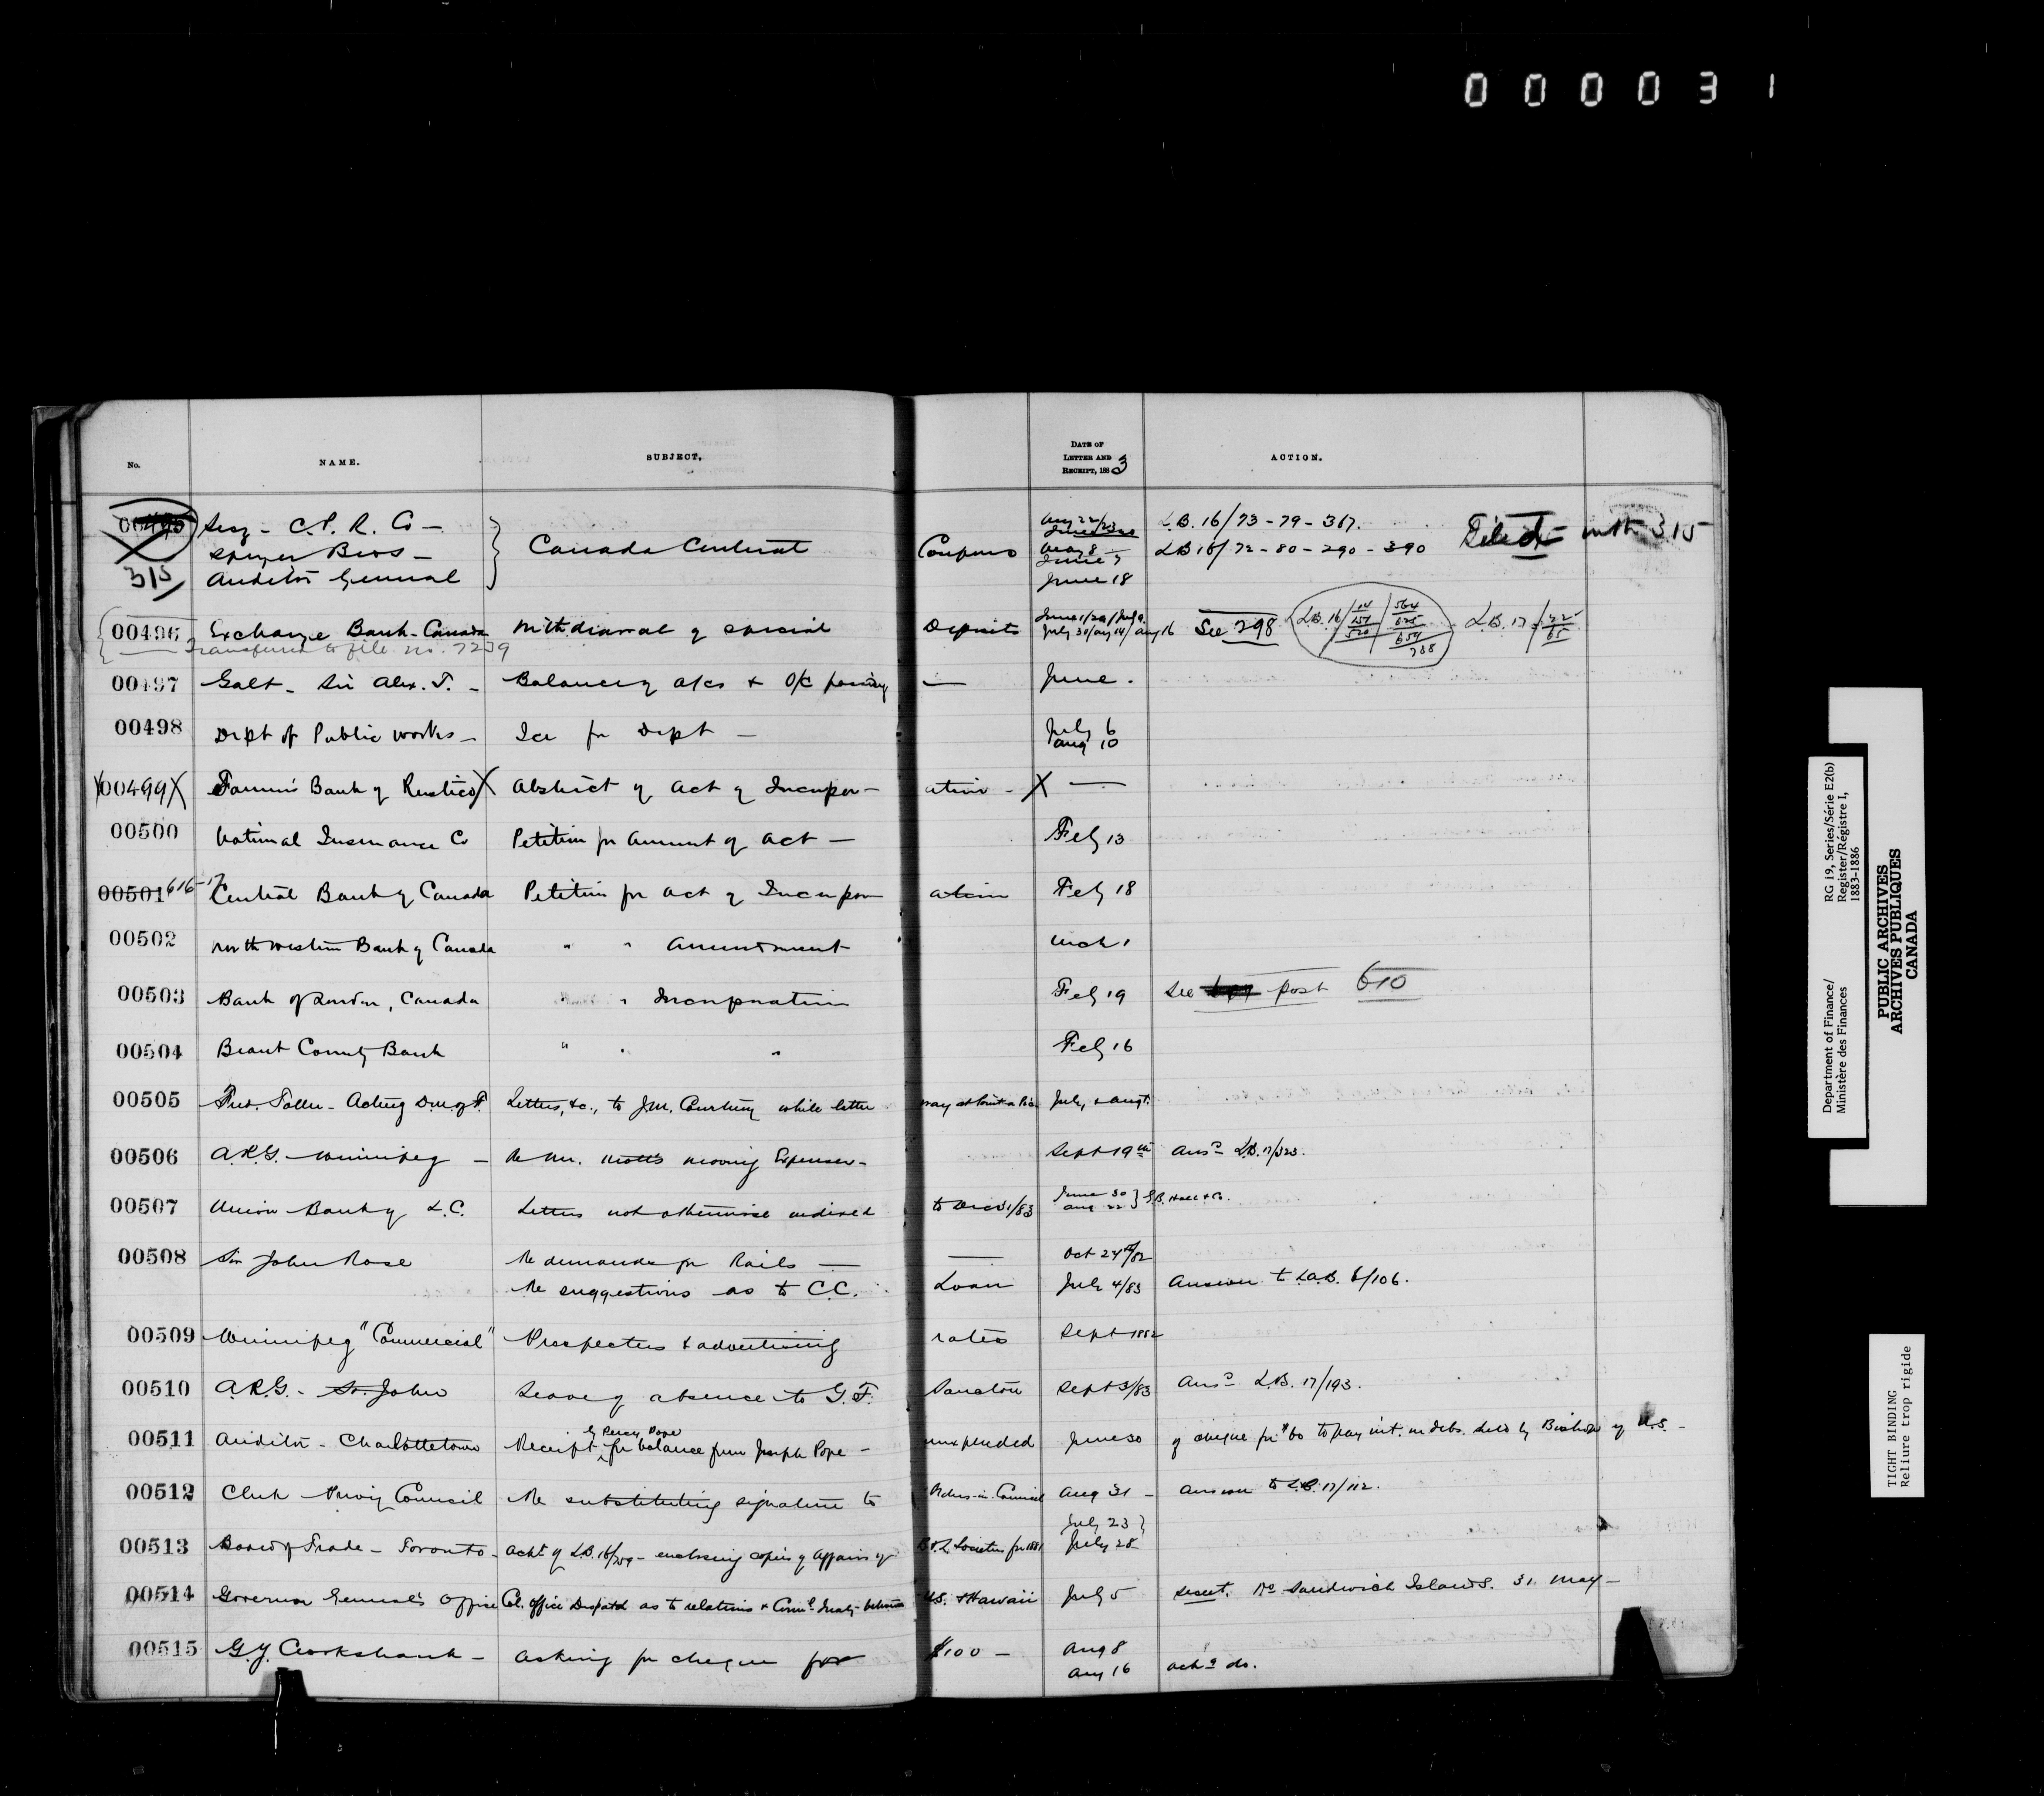 000031
No. NAME. SUBJECT. DATE OF LETTER AND RECEIPT, 1883 ACTION.
00495 Secy - C.P.R. Co - Canada Central Coupons Aug 22/23 L.B. 16/73-79-367. Filed with 315
315 Speyer Bros - May 8 LB 16/72-80-290-390
Auditor General June 18
00496 Exchange Bank - Canada Withdrawal of special Deposits June 1/29/July 9 July 30/Aug 14/Aug 16 See 298 L.B. 16/ L.B. 17/
Transferred to file no. 7239
00497 Galt - Sir Alex. T. - Balance of a/cs & O/C passing — June.
00498 Dept of Public Works - Ice for Dept — July 6
Aug 10
X00499X Farmers Bank of Rustico X Abstract of Act of Incorpor- ation - X —
00500 National Insurance Co Petition for Amment of Act — Feby 13
00501 616-17 Central Bank of Canada Petition for Act of Incorpor ation Feby 18
00502 North Western Bank of Canada " " Amendment Mch 1
00503 Bank of London, Canada " " Incorporation Feby 19 See post 610
00504 Brant County Bank " " " Feby 16
00505 Fred. Toller - Acting D.M. of F. Letters, &c., to J.M. Courtney while latter July, & Augt.
00506 A.R.G. Winnipeg - Re Mr. moving Expenses - Sept 19th Ansd L.B. 17/323.
00507 Union Bank of L.C. Letters not otherwise indexed to Dec 31/83 June 30 } Aug 22 }
00508 Sir John Rose Re demands for Rails — — Oct 24th/82
Re suggestions as to C.C. Loan July 4/83 Answer to L.B. 6/106.
00509 Winnipeg "Commercial" Prospectus & advertising rates Sept 1882
00510 A.R.G. - St. John Leave of absence to G.F. Sancton Sept 3/83 Ansd L.B. 17/193.
00511 Auditor - Charlottetown Receipt by Percy Pope for balance from Joseph Pope - unexpended June 30 of cheque for $60 to pay int. on debs. held by Bishop of
00512 Clerk Privy Council Re substituting signature to Orders-in-Council Aug 31 - Answer to L.B. 17/112.
00513 Board of Trade - Toronto - Ackt of L.B. 16/ - enclosing copies of Affairs of B & L Societies for 1881 July 23 } July 28
00514 Governor General's Office Col. Office Despatch as to relations & Comml Treaty between U.S. & Hawaii July 5 Secret. Re Sandwich Islands. 31 May -
00515 G.J. Crookshank - Asking for cheque for $100 - Aug 8
Aug 16 Ackg do.
Department of Finance/
Ministère des Finances
RG 19, Series/Série E2(b)
Register/Régistre I,
1883-1886
PUBLIC ARCHIVES
ARCHIVES PUBLIQUES
CANADA
TIGHT BINDING
Reliure trop rigide